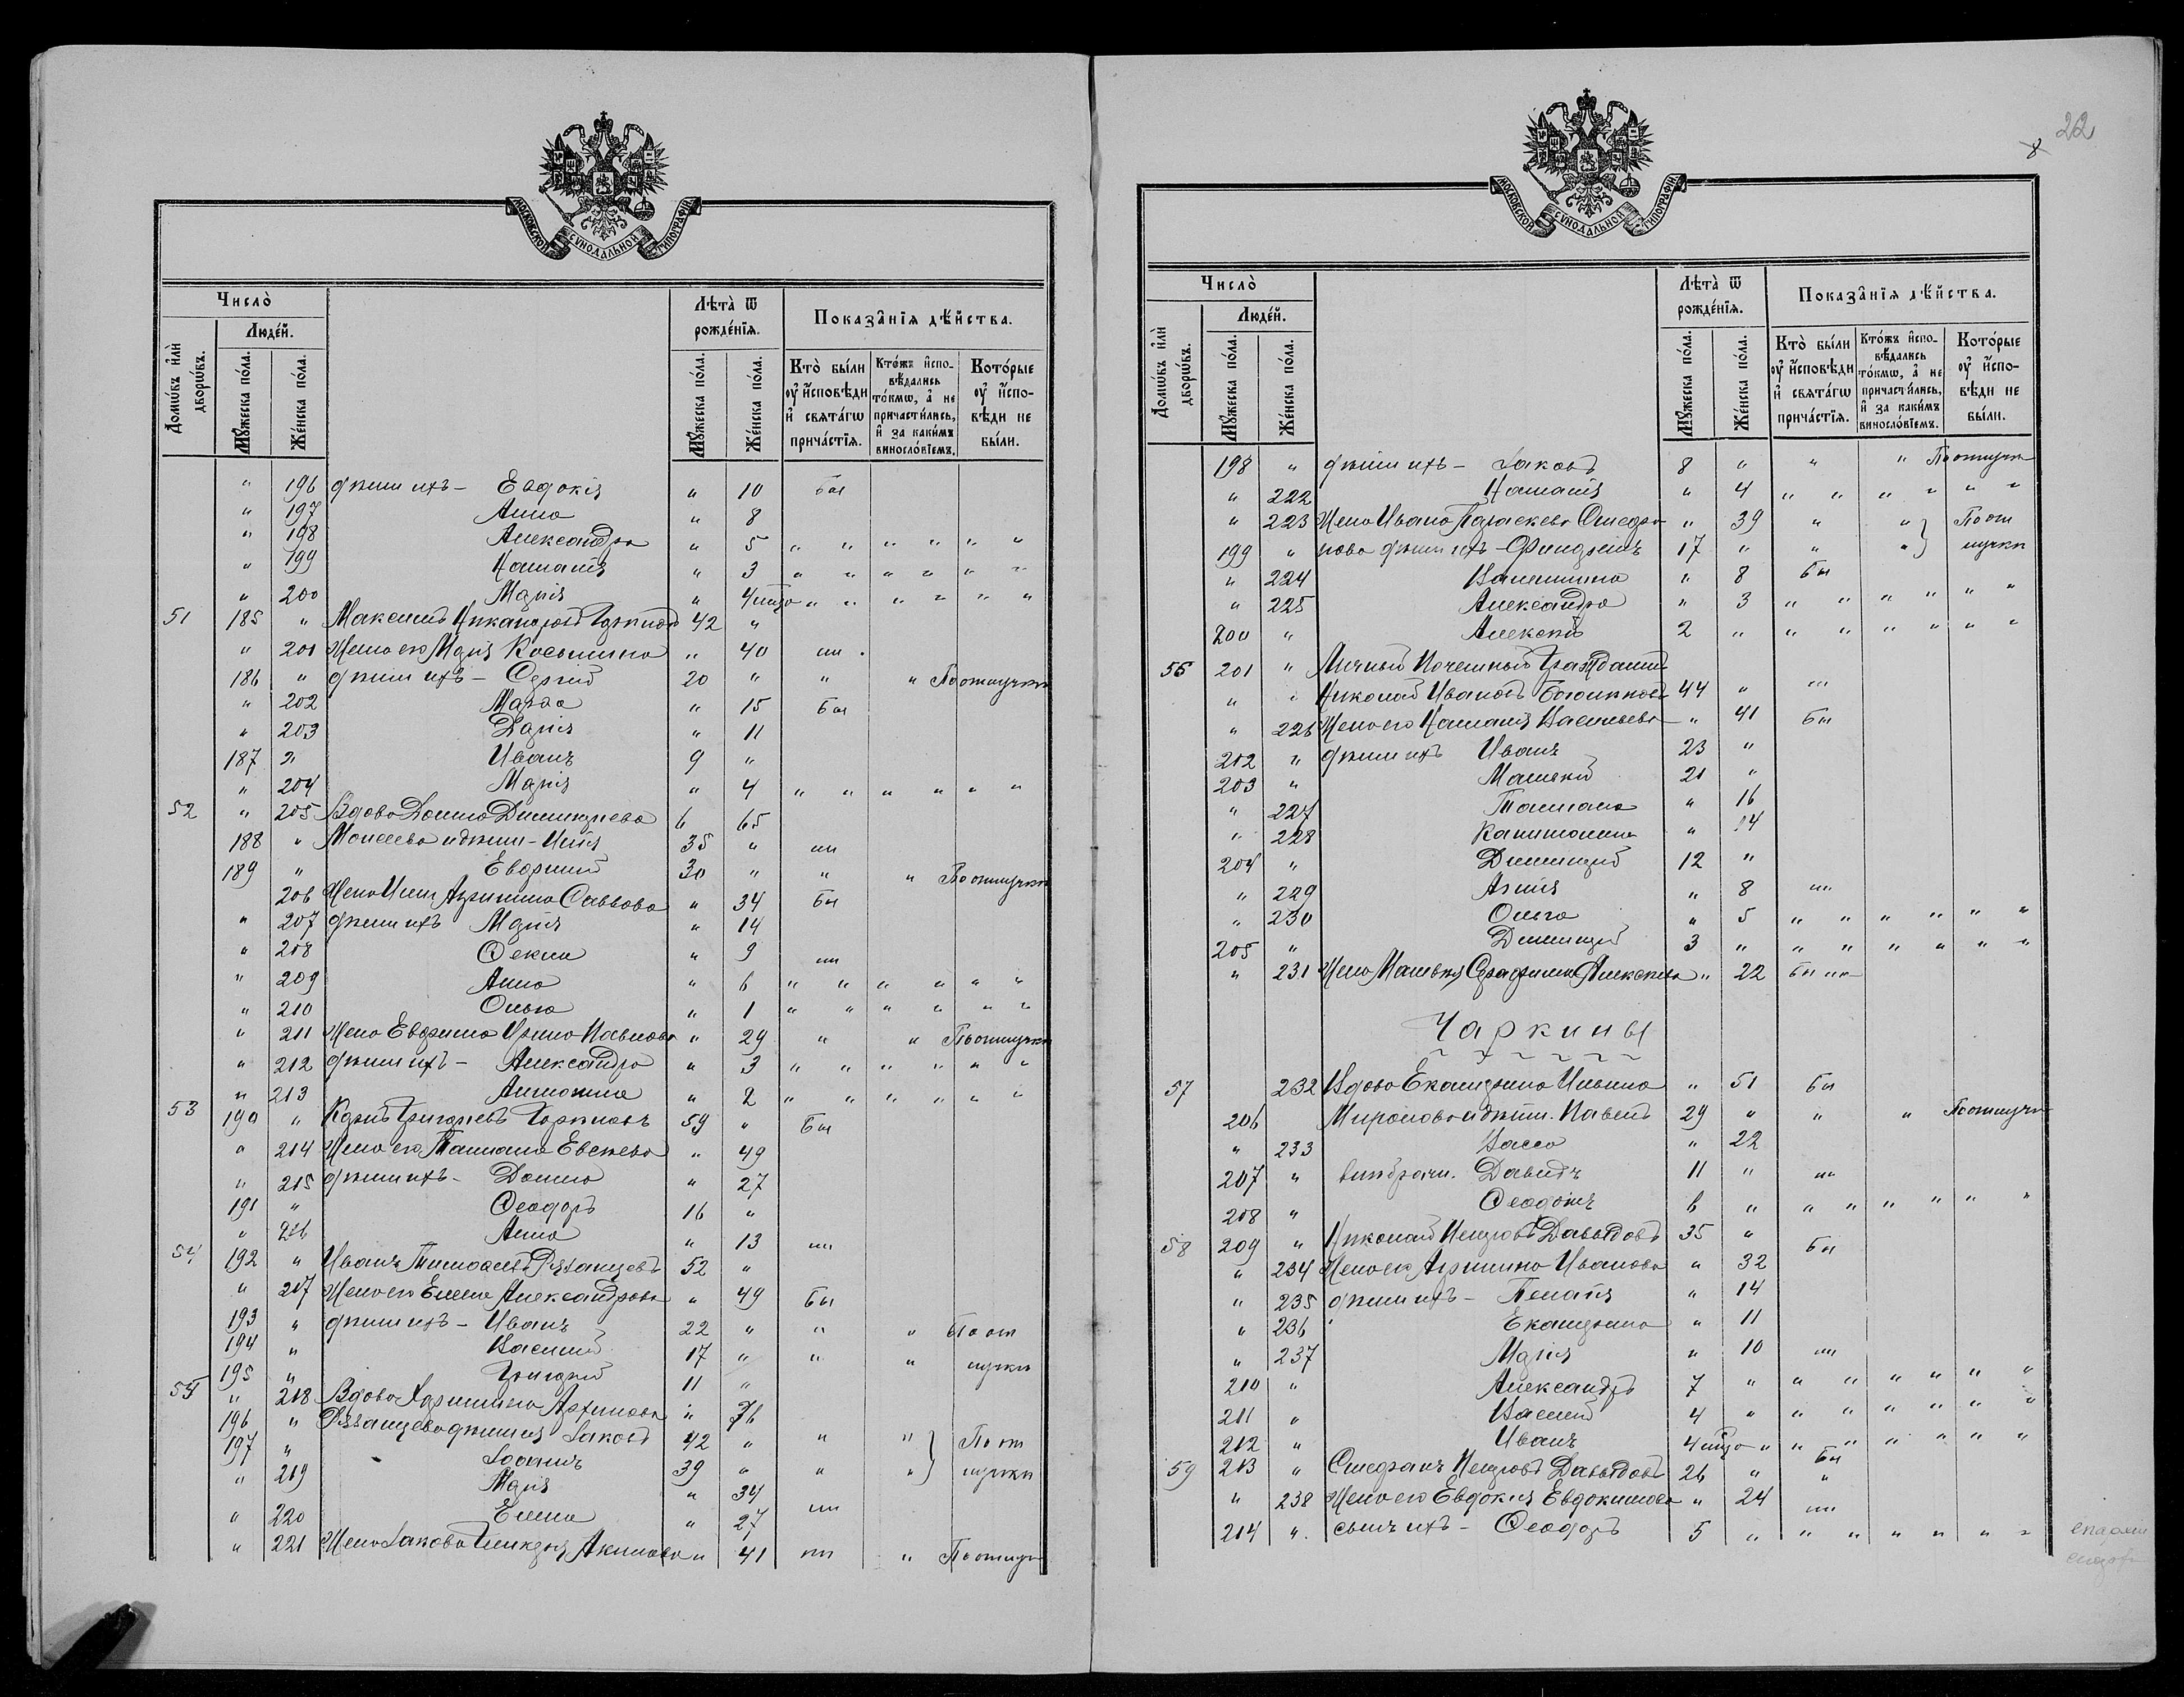 МОСКОВСКОЙ СѴНОДАЛЬНОЙ ТИПОГРАФІИ
Число
Людей.
Лѣта ѿ рожденія.
Показанія дѣйства.
Домовъ или дворовъ.
Мужеска пола.
Женска пола.
Мужеска пола.
Женска пола.
Кто были у исповѣди и святаго причастія.
Ктожъ исповѣдались токмо, а не причастились, и за какимъ винословіемъ.
Которые у исповѣди не были.
" 196 дѣти ихъ - Евдокія " 10 был
" 197 Анна " 8
" 198 Александра " 5 " " " " " "
" 199 Наталія " 3 " " " " " "
" 200 Марія " 4 " " " " " "
51 185 " Максимъ Никаноровъ 42 "
" 201 Жена его Марія Косьмина " 40
186 " дѣти ихъ - Сергій 20 " " " По отлучкѣ
" 202 Марѳа " 15 был
" 203 Дарія " 11
187 " Иванъ 9 "
" 204 Марія " 4 " " " " " "
52 " 205 Вдова Домна Димитріева 6 65
188 " Моисеева и дѣти - Илія 35 "
189 " Евфимій 30 " " " По отлучкѣ
206 Жена Иліи Агрипина Саввова " 34 был
" 207 дѣти ихъ Марія " 14
" 208 Ѳекла " 9
" 209 Анна " 6 " " " " " "
" 210 Ольга " 1 " " " " " "
" 211 Жена Евфимія Ирина Павлова " 29 " " По отлучкѣ
" 212 дѣти ихъ - Александра " 3 " " " " " "
" 213 Антонина " 2 " " " " " "
53 190 " Григорьевъ 59 " был
" 214 Жена его Татіана Евсеева " 49
" 215 дѣти ихъ - Домна " 27
191 " Ѳеодоръ 16 "
" 216 Анна " 13
54 192 " Иванъ Тимоѳеевъ Рязанцевъ 52 "
" 217 Жена его Елена Александрова " 49 был
193 " дѣти ихъ - Иванъ 22 " " " По от
194 " Василій 17 " " " лучкѣ
195 " Григорій 11 "
55 " 218 Вдова Харитина Архипова " 76
196 " Рязанцева дѣти ея Іаковъ 42 " " " По от
197 " Іоаннъ 39 " " " лучкѣ
" 219 Марія " 34
" 220 Елена " 27
" 221 Жена Іакова Гликерія Акимова " 41 " По отлуч
22
8
МОСКОВСКОЙ СѴНОДАЛЬНОЙ ТИПОГРАФІИ
Число
Людей.
Лѣта ѿ рожденія.
Показанія дѣйства.
Домовъ или дворовъ.
Мужеска пола.
Женска пола.
Мужеска пола.
Женска пола.
Кто были у исповѣди и святаго причастія.
Ктожъ исповѣдались токмо, а не причастились, и за какимъ винословіемъ.
Которые у исповѣди не были.
198 " дѣти ихъ - Іаковъ 8 " " " По отлучк
" 222 Наталія " 4 " " " " " "
" 223 Жена Ивана Параскева " 39 " " По от
199 " дѣти ихъ - 17 " " " лучкѣ
" 224 Валентина " 8 был
" 225 Александра " 3 " " " " " "
200 " Алексѣй 2 " " " " " " "
56 201 " Личный Почетный Гражданинъ
" " Николай Ивановъ 44 "
" 226 Жена его Наталія Васильева " 41 был
202 " дѣти ихъ Иванъ 23 "
203 " Матѳей 21 "
" 227 Татіана " 16
" 228 Капитолина " 14
204 " Димитрій 12 "
" 229 Агнія " 8
" 230 Ольга " 5 " " " " " "
205 " Димитрій 3 " " " " " " "
" 231 Жена Матѳея Серафима Алексѣева " 22 был
Чаркины
57 232 Вдова Екатерина Ильина " 51 был
206 Миронова и дѣти. Павелъ 29 " " " По отлучк
" 233 Васса " 22
207 " внѣбрачн. Давидъ 11 "
208 " Ѳеодоръ 6 " " " " " " "
58 209 " Николай Петровъ Давыдовъ 35 " был
" 234 Жена его Агрипина Иванова " 32
" 235 дѣти ихъ - Пелагія " 14
" 236 Екатерина " 11
" 237 Марія " 10
210 " Александръ 7 " " " " " " "
211 " Василій 4 " " " " " " "
212 " Иванъ 4 " " " " " " "
59 213 " Стефанъ Петровъ Давыдовъ 26 " был
" 238 Жена его Евдокія Евдокимова " 24
214 " сынъ ихъ - Ѳеодоръ 5 " " " " " " "